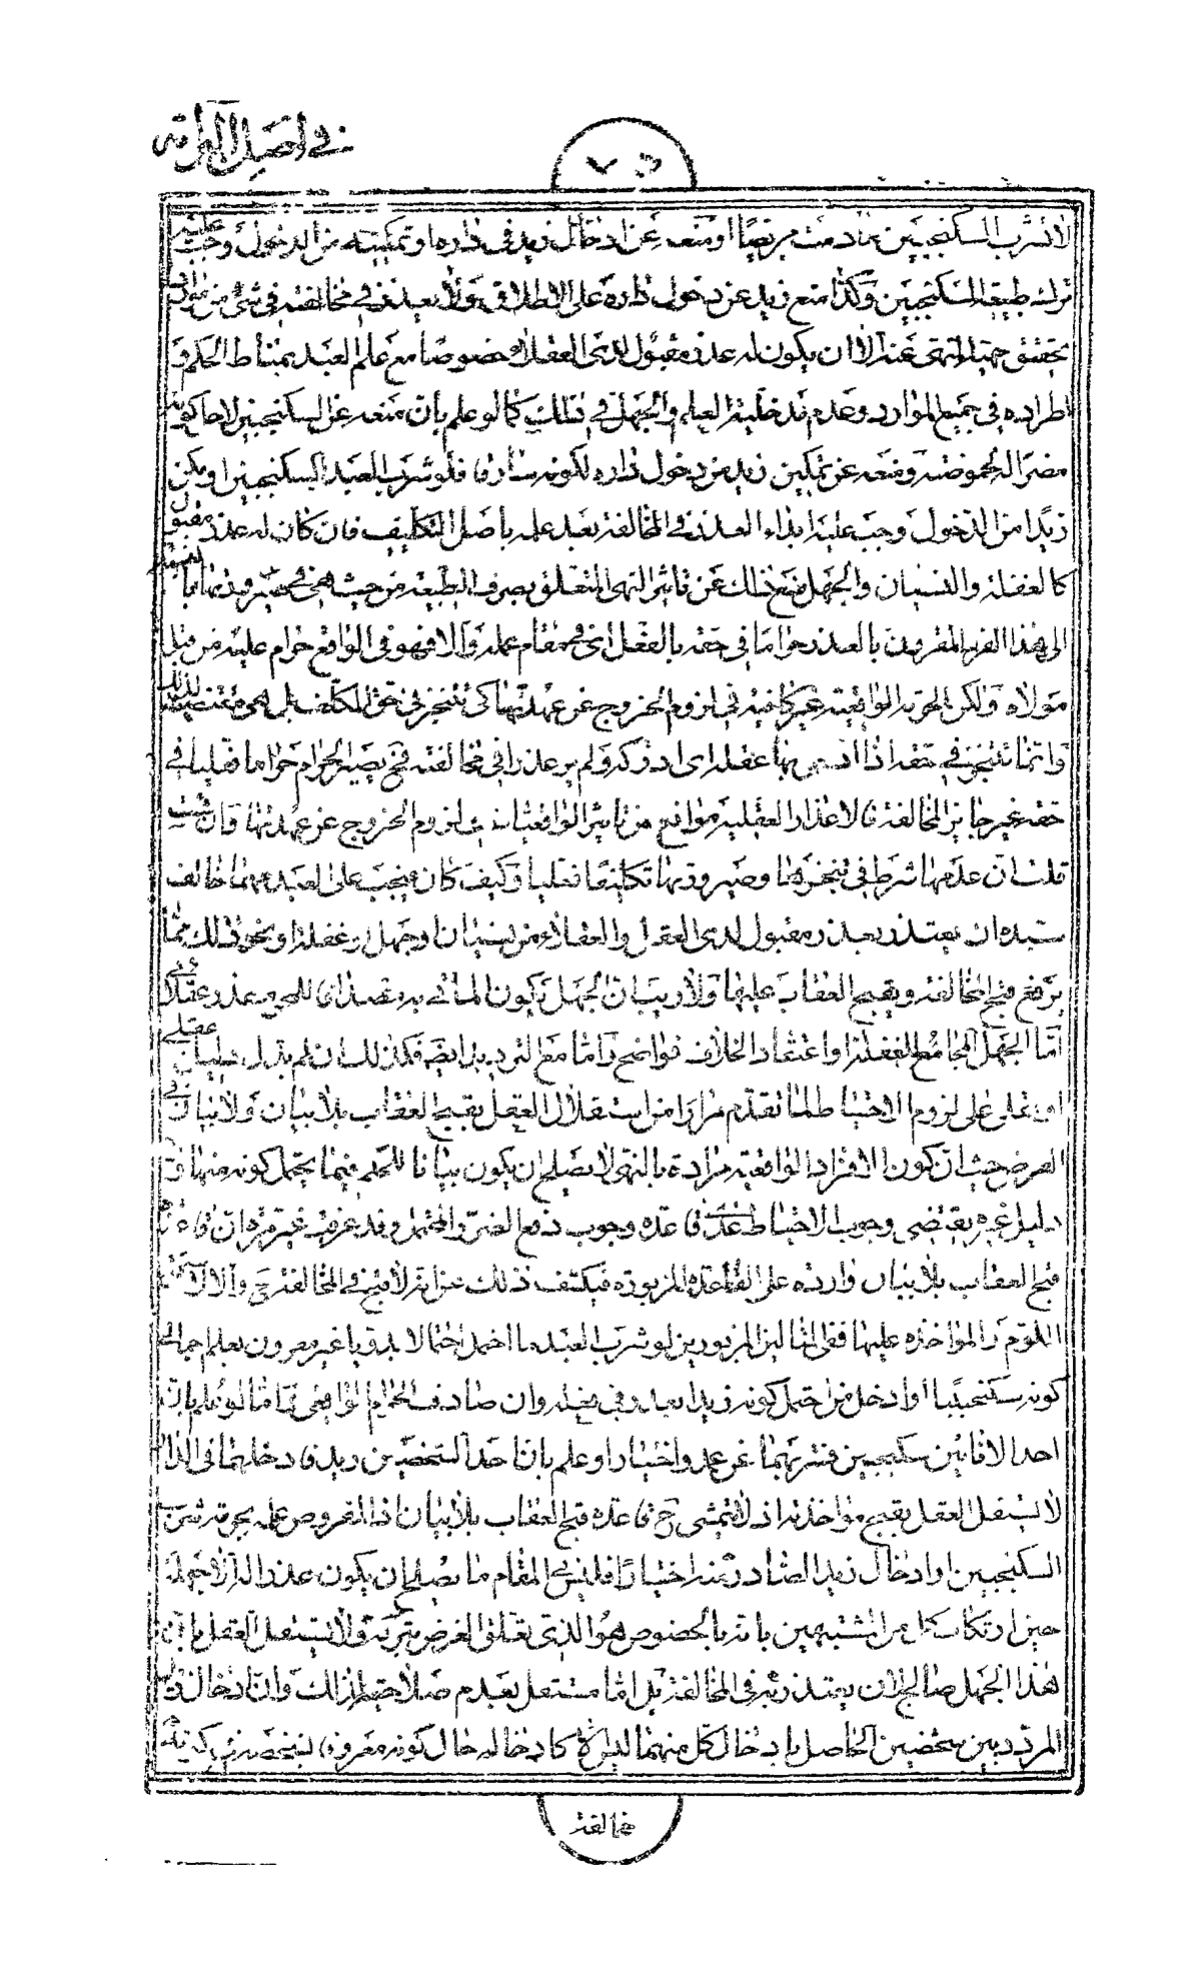 في اصل البرائة
٧٥
لا تشرب السكنجبين ما دمت مريضا او منعه عن ادخال زيد في داره و تمكينه من الدخول وجب عليه
ترك طبيعة السكنجبين وكذا منع زيد عن دخول داره على الاطلاق ولا يعذر في مخالفته في شئ من موارد
تحقق جهة النهى عنه الا ان يكون له عذر مقبول لدى العقلاء خصوصا مع علم العبد بمناط الحكم و
اطراده في جميع الموارد وعدم مدخلية العلم والجهل في ذلك كما لو علم بان منعه عن السكنجبين لاجل كونه
مضرا لحموضته ومنعه عن تمكين زيد من دخول داره لكونه سارقا فلو شرب العبد السكنجبين او مكن
زيدا من الدخول وجب عليه ابداء العذر في المخالفة بعد علمه باصل التكليف فان كان له عذر مقبول
كالغفلة والنسيان والجهل منع ذلك عن تاثير النهى المتعلق بصرف الطبيعة من حيث هي في صيرورتها بالنسبة
الى هذا الفرد المقرون بالعذر حراما في حقه بالفعل اى في مقام عمله والا فهو في الواقع حرام عليه من قبل
مولاه ولكن الحرمة الواقعية غير كافية في لزوم الخروج عن عهدتها كى تتنجز في حق المكلف بل هى مقتضية لذلك
وانما تتنجز في حقه اذا عقله اى ادركه ولم ير عذرا في مخالفته فح يصير الحرام حراما فعليا في
حقه غير جايز المخالفة فالاعذار العقلية موانع من تاثير الواقعيات في لزوم الخروج عن عهدتها فان شئت
قلت ان عدمها شرط في تنجزها وصيرورتها تكليفا فعليا وكيف كان فيجب على العبد مهما خالف
سيده ان يعتذر بعذر مقبول لدى العقل والعقلاء من نسيان او جهل او غفلة او نحو ذلك مما
يرفع قبح المخالفة ويقبح العقاب عليها ولا ريب ان الجهل بكون الماتى به مقصدا للمولى عذر عقلا
اما الجهل الجامع للغفلة او اعتقاد الخلاف فواضح واما مع الترديد ايضا فكذلك ان لم يدل دليل عقلى
او نقلى على لزوم الاحتياط لما تقدم مرارا من استقلال العقل بقبح العقاب بلا بيان ولا بيان في
الفرض حيث ان كون الافراد الواقعية مرادة بالنهى لا يصلح ان يكون بيانا للحكم فيما يحتمل كونه منها ولا
دليل غيره يقتضى وجوب الاحتياط عدى قاعدة وجوب دفع الضرر المحتمل وقد عرفت غير مرة ان قاعدة
قبح العقاب بلا بيان واردة على القاعدة المزبورة فيكشف ذلك عن انه لا قبح في المخالفة ح والا
اللوم والمواخذة عليها ففى المثالين المزبورين لو شرب العبد ما احتمل احتمالا بدويا غير مقرون بعلم اجمالى
كونه سكنجبينا او ادخل من احتمل كونه زيدا يعذر في فعله وان صادف الحرام الواقعى واما لو علم بان
احد الانائين سكنجبين فشربهما عن عمد واختيار او علم بان احد الشخصين زيد فادخلهما في الدار
لا يستقل العقل بقبح مواخذته اذ لا يتمشى ح قاعدة قبح العقاب بلا بيان اذ المفروض علمه بحرمة شرب
السكنجبين او ادخال زيد الصادر منه اختيارا فليس في المقام ما يصلح ان يكون عذرا له الا جهله
حين ارتكاب كل من المشتبهين بانه بالخصوص هو الذى تعلق الغرض بتركه ولا يستقل العقل بان
هذا الجهل صالح لان يعتذر به في المخالفة بل اما مستقل بعدم صلاحيته لذلك وان ادخال زيد
المردد بين شخصين الحاصل بادخال كل منهما الدار كادخاله حال كونه معروفا بشخصه في كونه
مخالفة